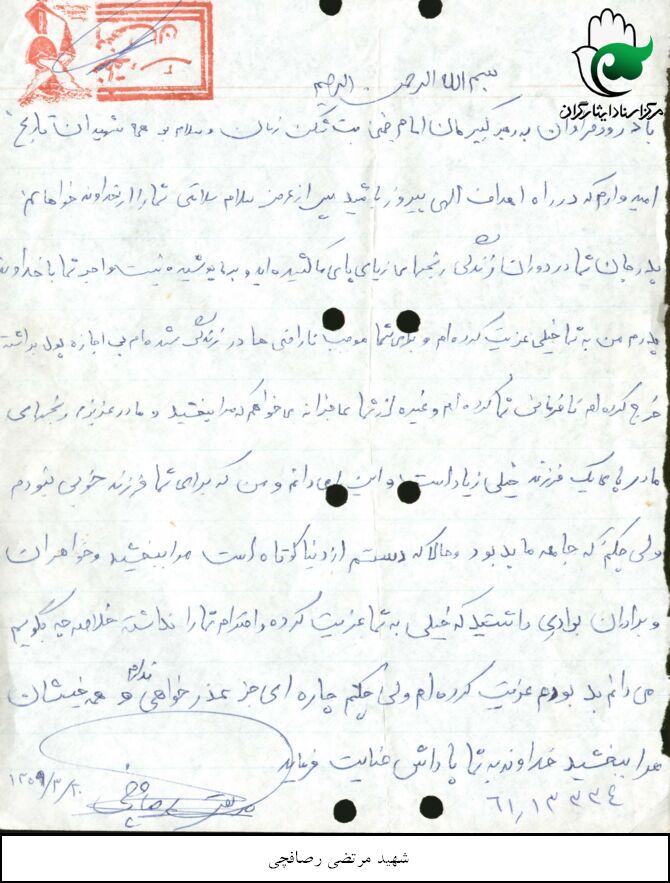 مرکز اسناد ایثارگران
بسم الله الرحمن الرحیم
با درود فراوان به رهبر کبیرمان امام خمینی بت شکن زمان و سلام بر همه شهیدان تاریخ
امیدوارم که در راه اهداف الهی پیروز باشید پس از عرض سلام سلامتی شما را از خداوند خواهانم
پدر جان شما در دوران زندگی رنجهای زیادی پای ما کشیده اید و بر ما پوشیده نیست و اجر شما با خداوند
پدرم من به شما خیلی عزیت کرده ام و برای شما موجب ناراحتی ها در زندگی شده ام بی اجازه پول برداشته
خرج کرده ام نافرمانی شما کرده ام و غیره از شما عاجزانه می خواهم که مرا ببخشید و مادر عزیزم رنجهای
مادر پای یک فرزند خیلی زیاد است و این را می دانم و من که برای شما فرزند خوبی نبودم
ولی چکنم که جامعه ما بد بود و حالا که دستم از دنیا کوتاه است مرا ببخشید و خواهران
و برادران برادری داشتید که خیلی به شما عزیت کرده و احترام شما را نداشته خلاصه چه گویم
می دانم بد بودم عزیت کرده ام ولی چکنم چاره ای جز عذر خواهی ندارم و همه خیشان
مرا ببخشید خداوند به شما پاداش عنایت فرماید
۶۱,۱۳۳۳۴
شهید مرتضی رصافچی